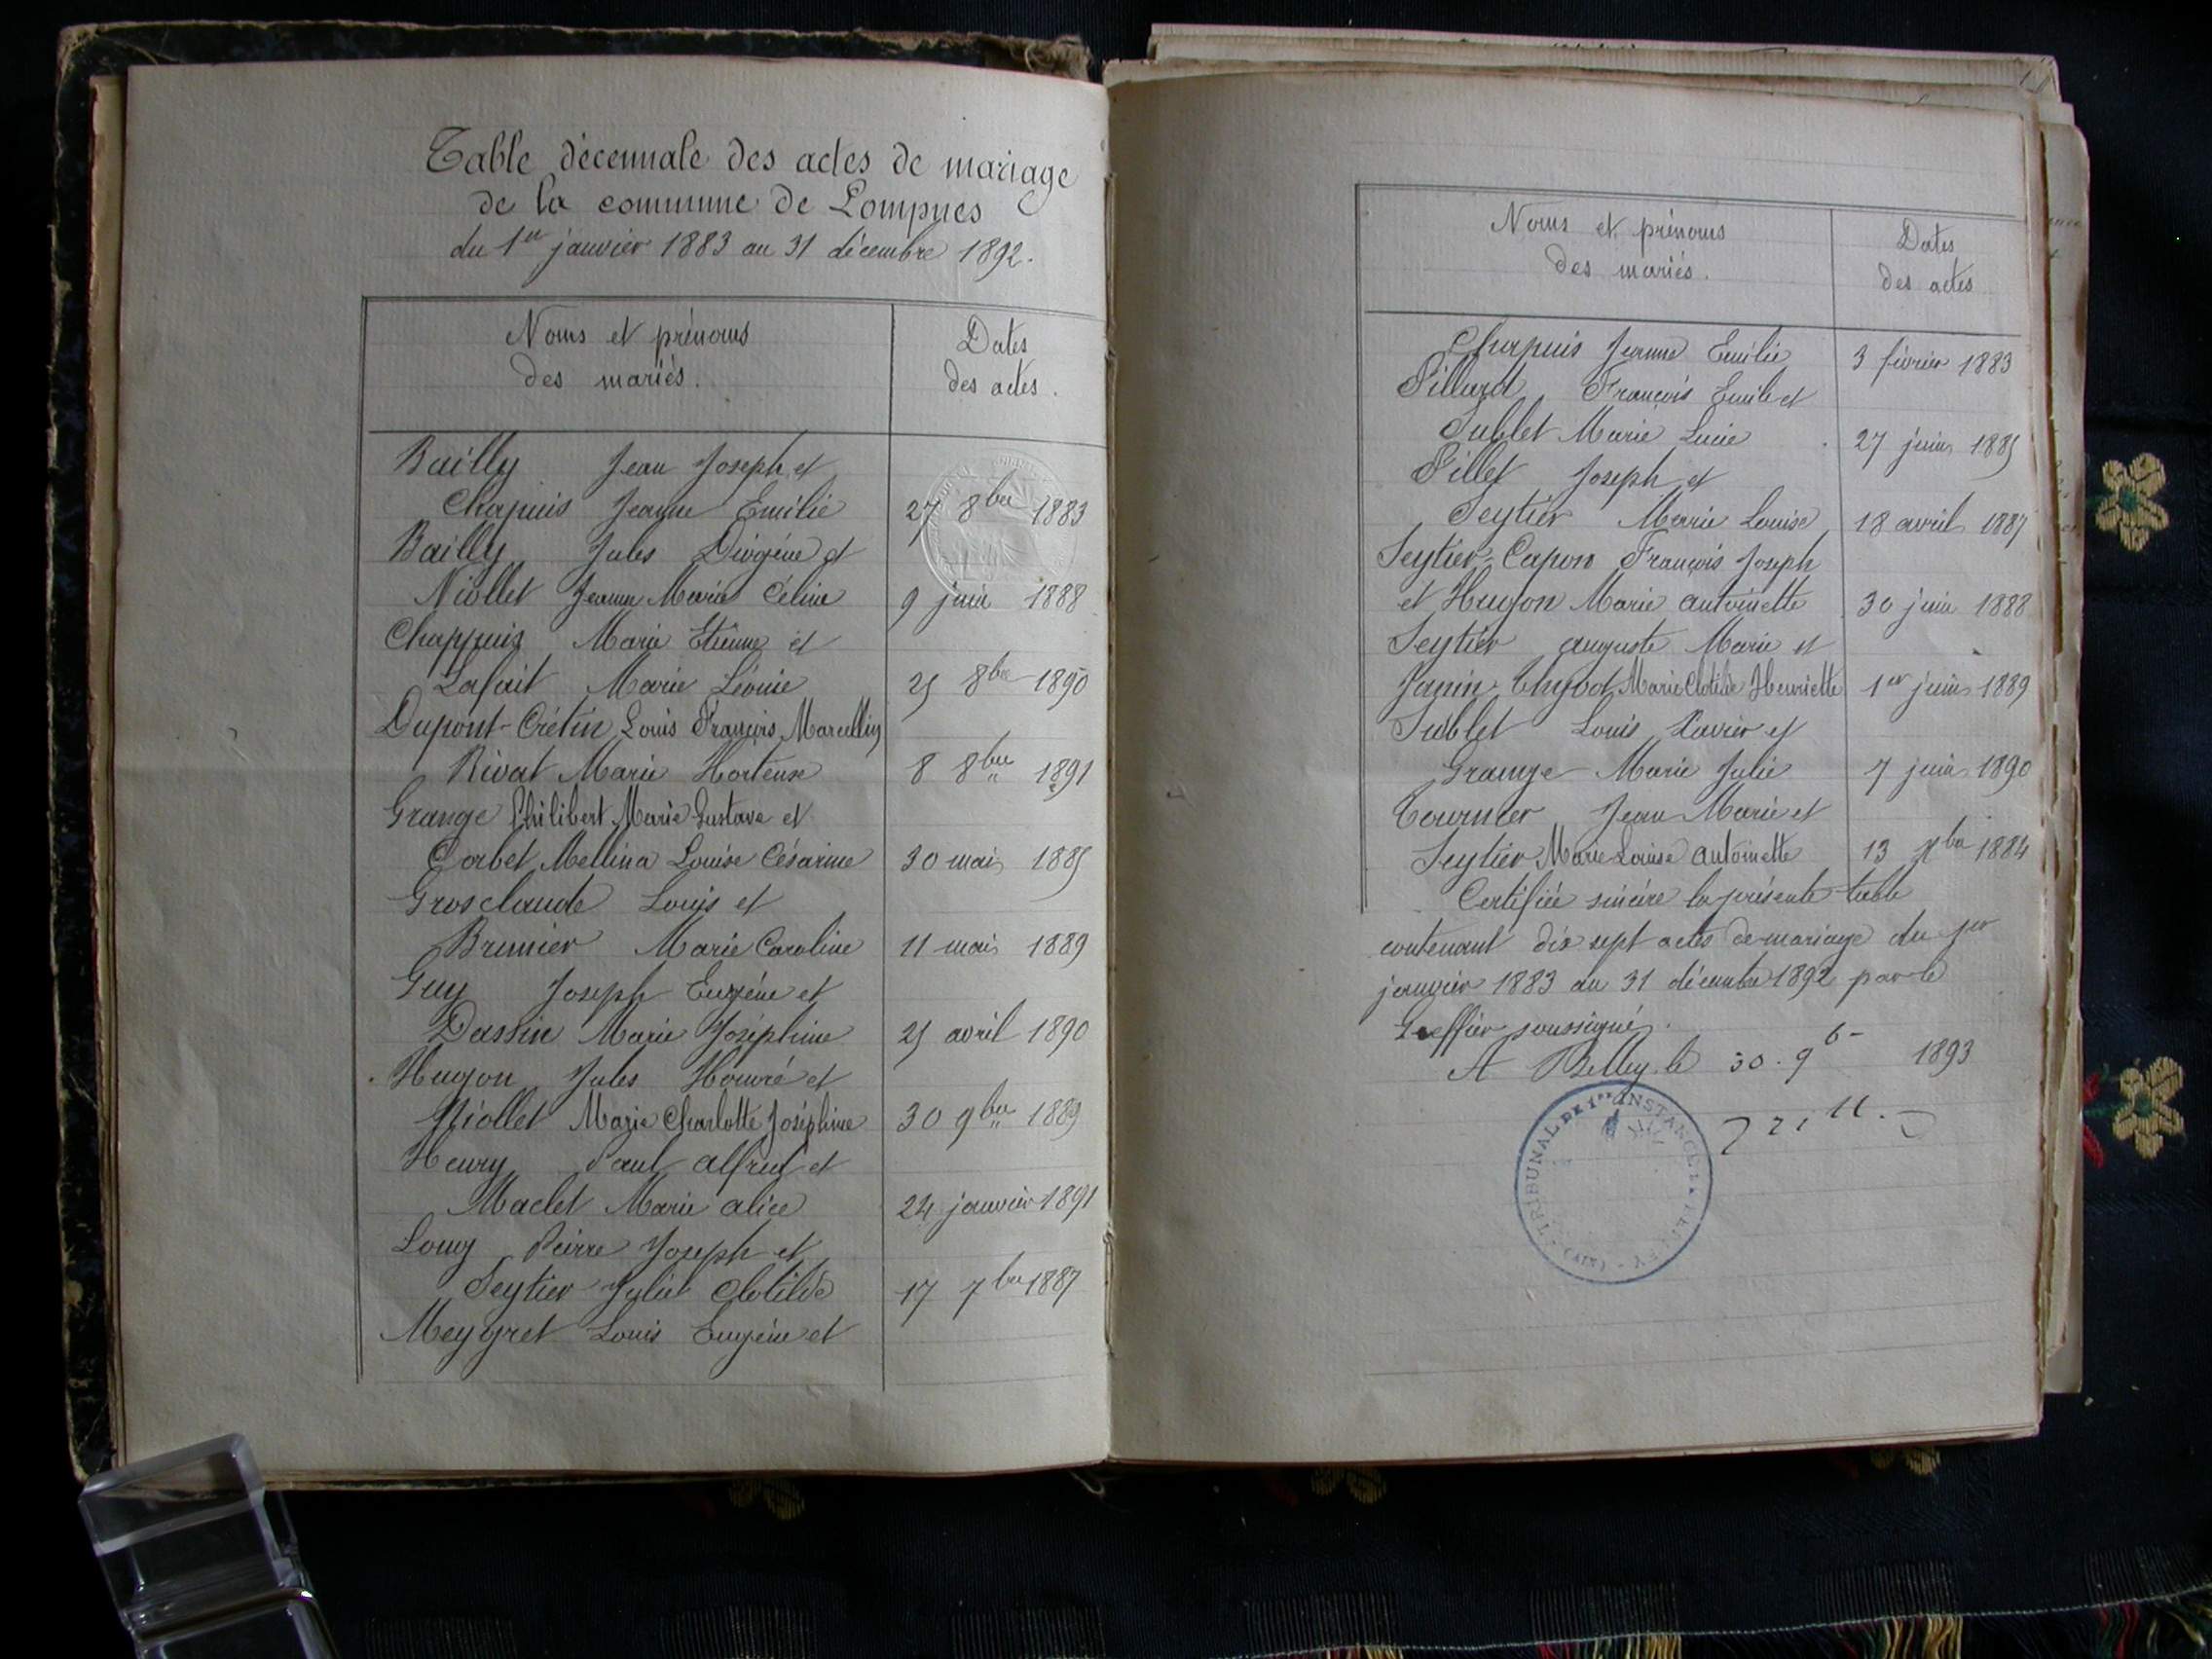 Table décennale des actes de mariage
de la commune de Lompnes
du 1er janvier 1883 au 31 décembre 1892.
Noms et prénoms
des mariés.
Dates
des actes.
Bailly Jean Joseph et
Chapuis Jeanne Emilie 27 8bre 1883
Bailly Jules Diogène et
Niollet Jeanne Marie Céline 9 juin 1888
Chappuis Marie Etienne et
Lafait Marie Léonie 25 8bre 1890
Dupont-Crétin Louis François Marcellin
Rivat Marie Hortense 8 8bre 1891
Grange Philibert Marie Gustave et
Corbet Mellina Louise Césarine 30 mai 1885
Grosclaude Louis et
Brunier Marie Caroline 11 mai 1889
Guy Joseph Eugène et
Dassin Marie Joséphine 25 avril 1890
Hugon Jules Honoré et
Niollet Marie Charlotte Joséphine 30 9bre 1889
Henry Paul Alfred et
Maclet Marie alice 24 janvier 1891
Louy Pierre Joseph et
Seytier Julie Clotilde 17 7bre 1887
Meygret Louis Eugène et
Noms et prénoms
des mariés.
Dates
des actes
Chapuis Jeanne Emilie 3 février 1883
Pillard François Emile et
Sublet Marie Lucie 27 juin 1885
Pillet Joseph et
Seytier Marie Louise 18 avril 1887
Seytier-Capon François Joseph
et Hugon Marie antoinette 30 juin 1888
Seytier auguste Marie et
Janin Marie Clotilde Henriette 1er juin 1889
Sublet Louis Xavier et
Grange Marie Julie 7 juin 1890
Tournier Jean Marie et
Seytier Marie Louise antoinette 13 1884
Certifiée sincère la présente table
contenant dix sept actes de mariage du 1er
janvier 1883 au 31 décembre 1892 par le
Greffier soussigné.
A Belley le 30. 9b 1893
TRIBUNAL DE 1re INSTANCE